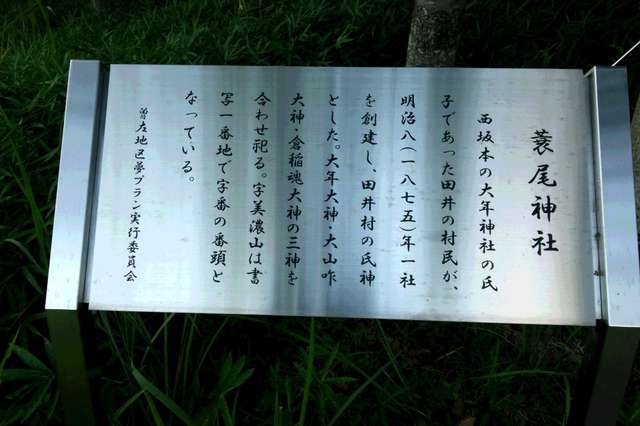 蓑尾神社
西坂本の大年神社の氏
子であった田井の村民が、
明治八(一八七五)年一社
を創建し、田井村の氏神
とした。大年大神・大山咋
大神・倉稲魂大神の三神を
合わせ祀る。字美濃山は書
写一番地で字番の番頭と
なっている。
曽左地区夢プラン実行委員会